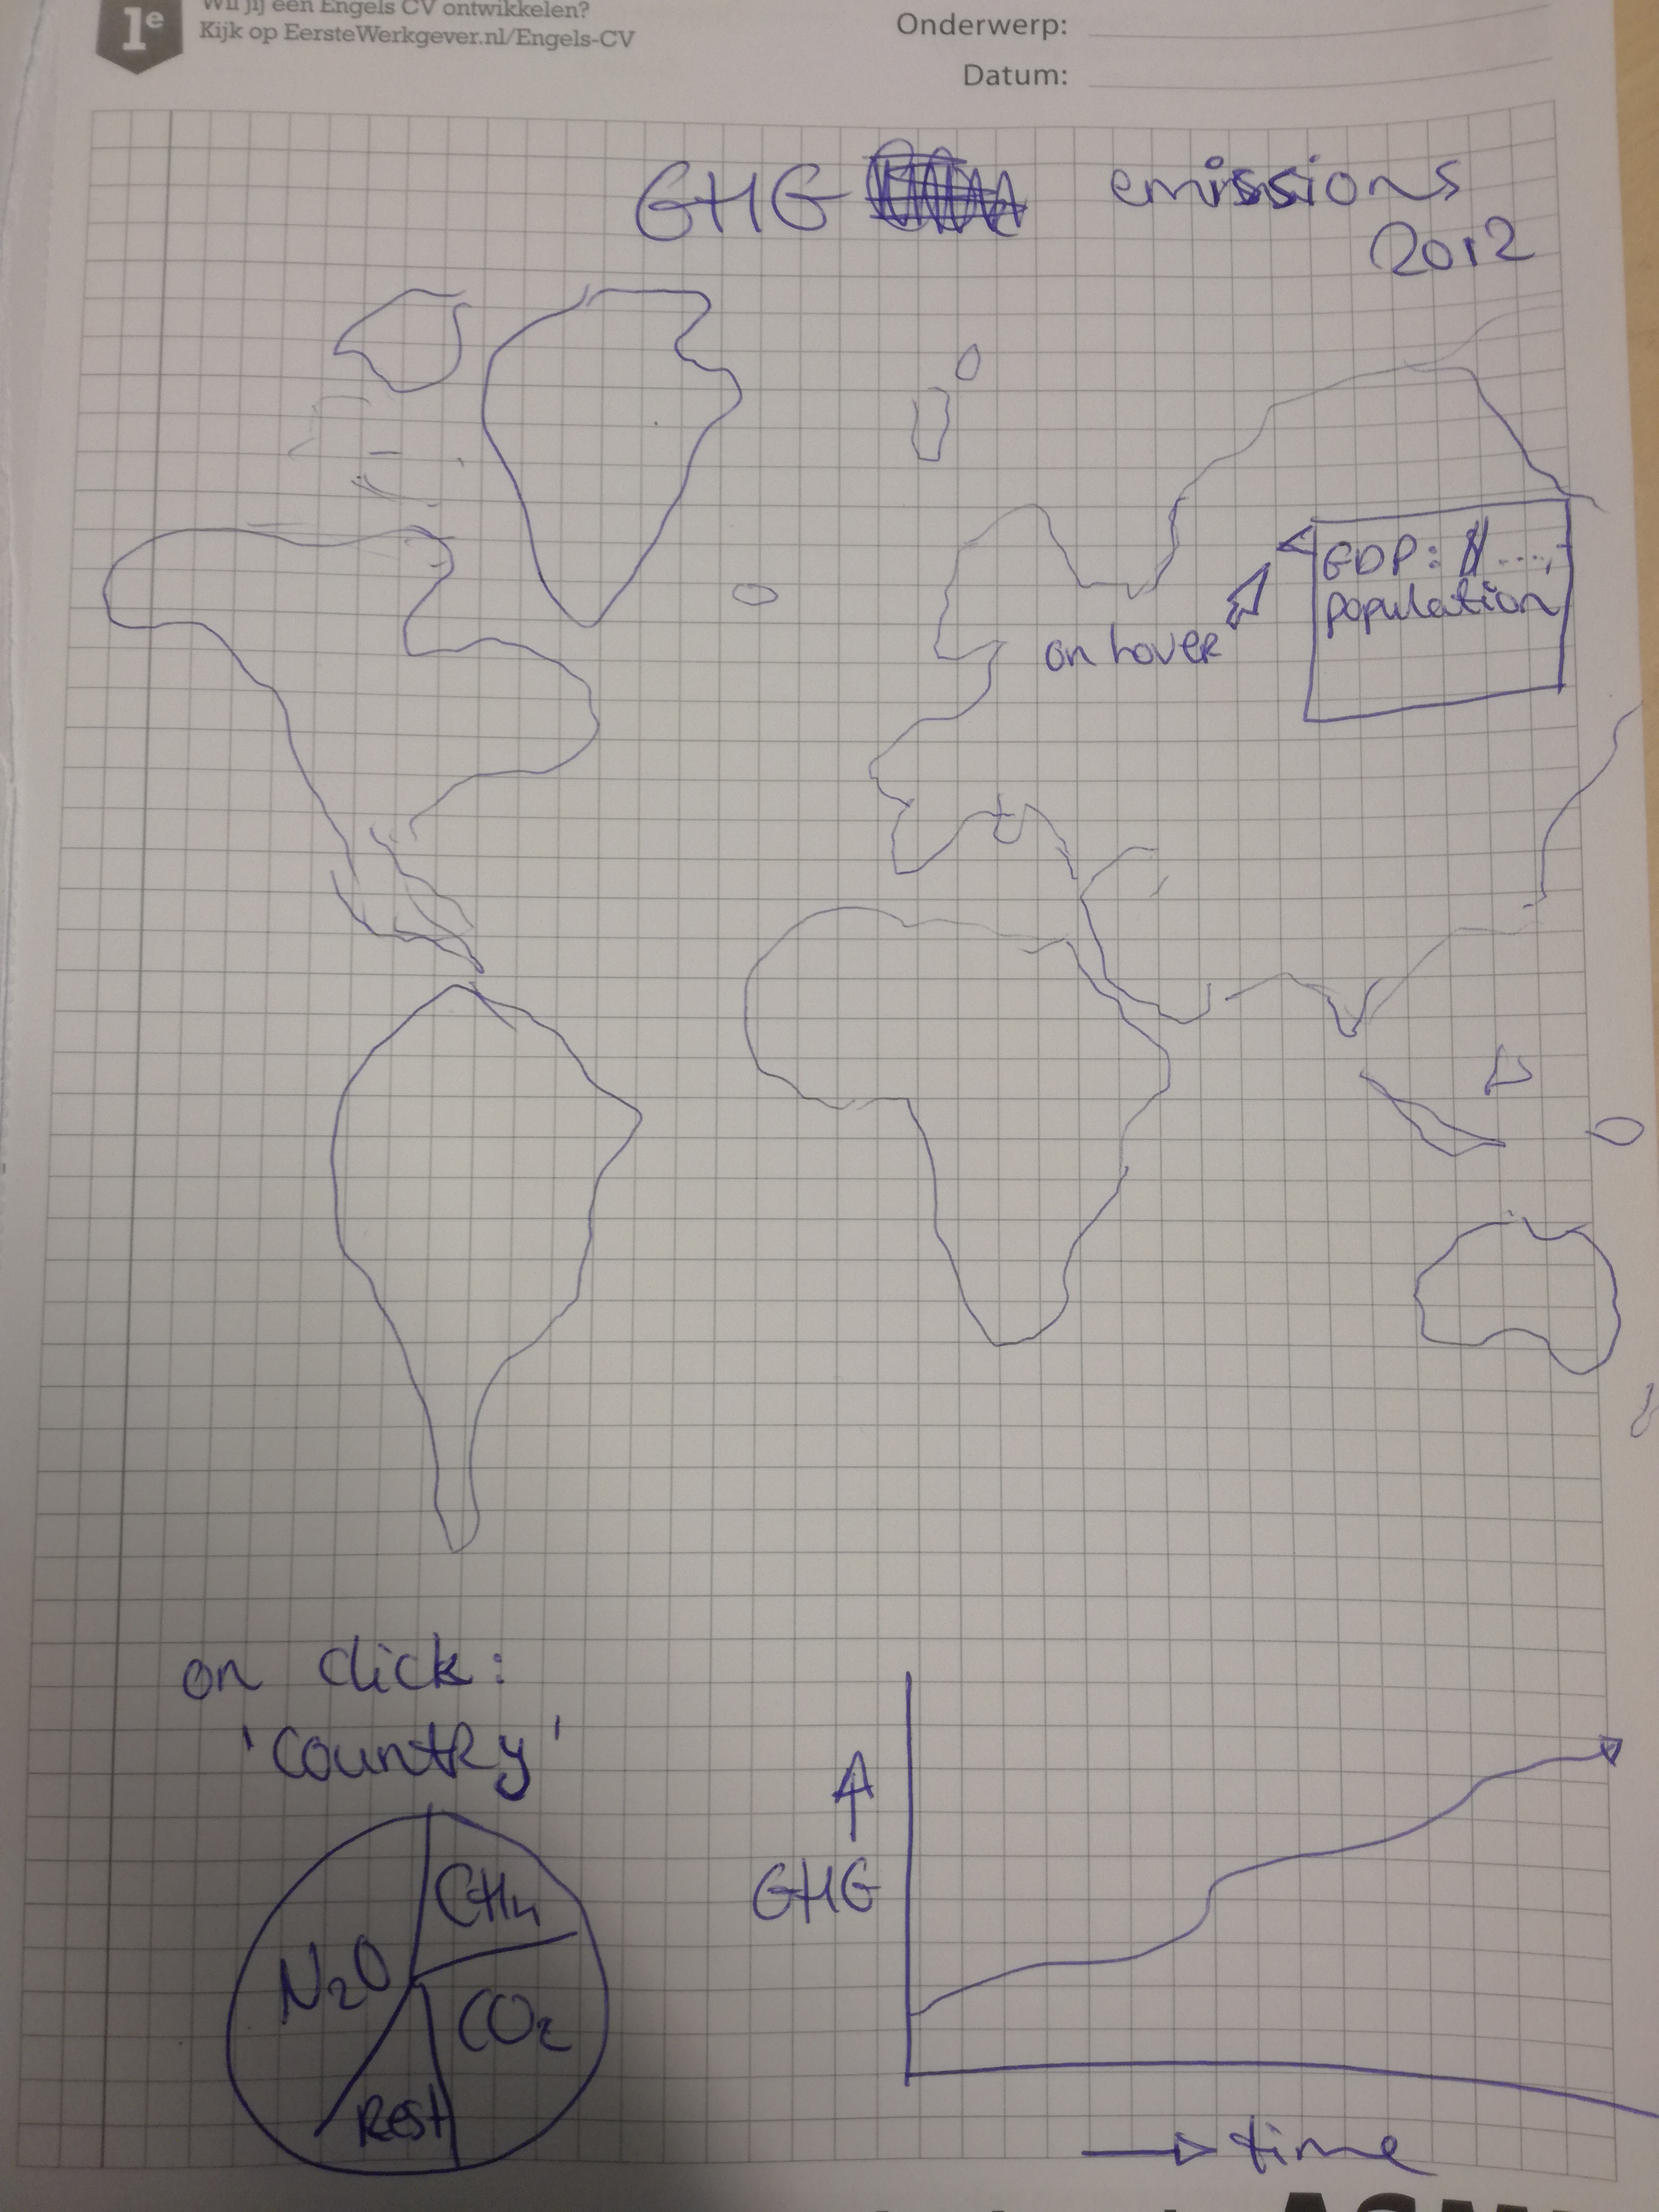 1e
Wil jij een Engels CV ontwikkelen?
Kijk op EersteWerkgever.nl/Engels-CV
Onderwerp:
Datum:
GHG emissions
2012
GDP: $ ....,-
population
on hover
on click:
'Country'
CH4
N2O
CO2
Rest
GHG
time